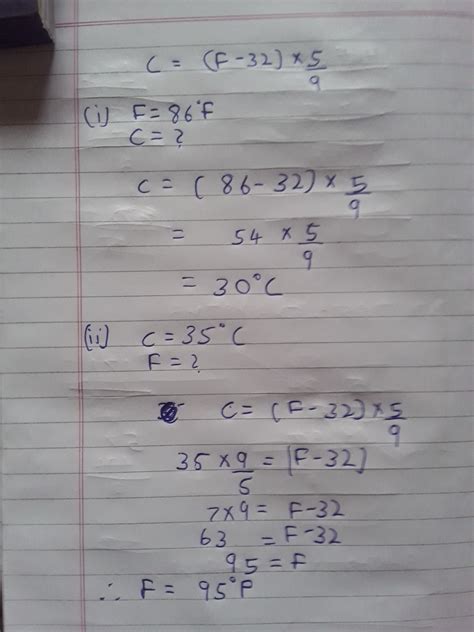 C = (F-32) × 5/9
(i) F = 86°F
C = ?
C = (86-32) × 5/9
= 54 × 5/9
= 30°C
(ii) C = 35°C
F = ?
C = (F-32) × 5/9
35 × 9/5 = (F-32)
7×9 = F-32
63 = F-32
95 = F
∴ F = 95°F